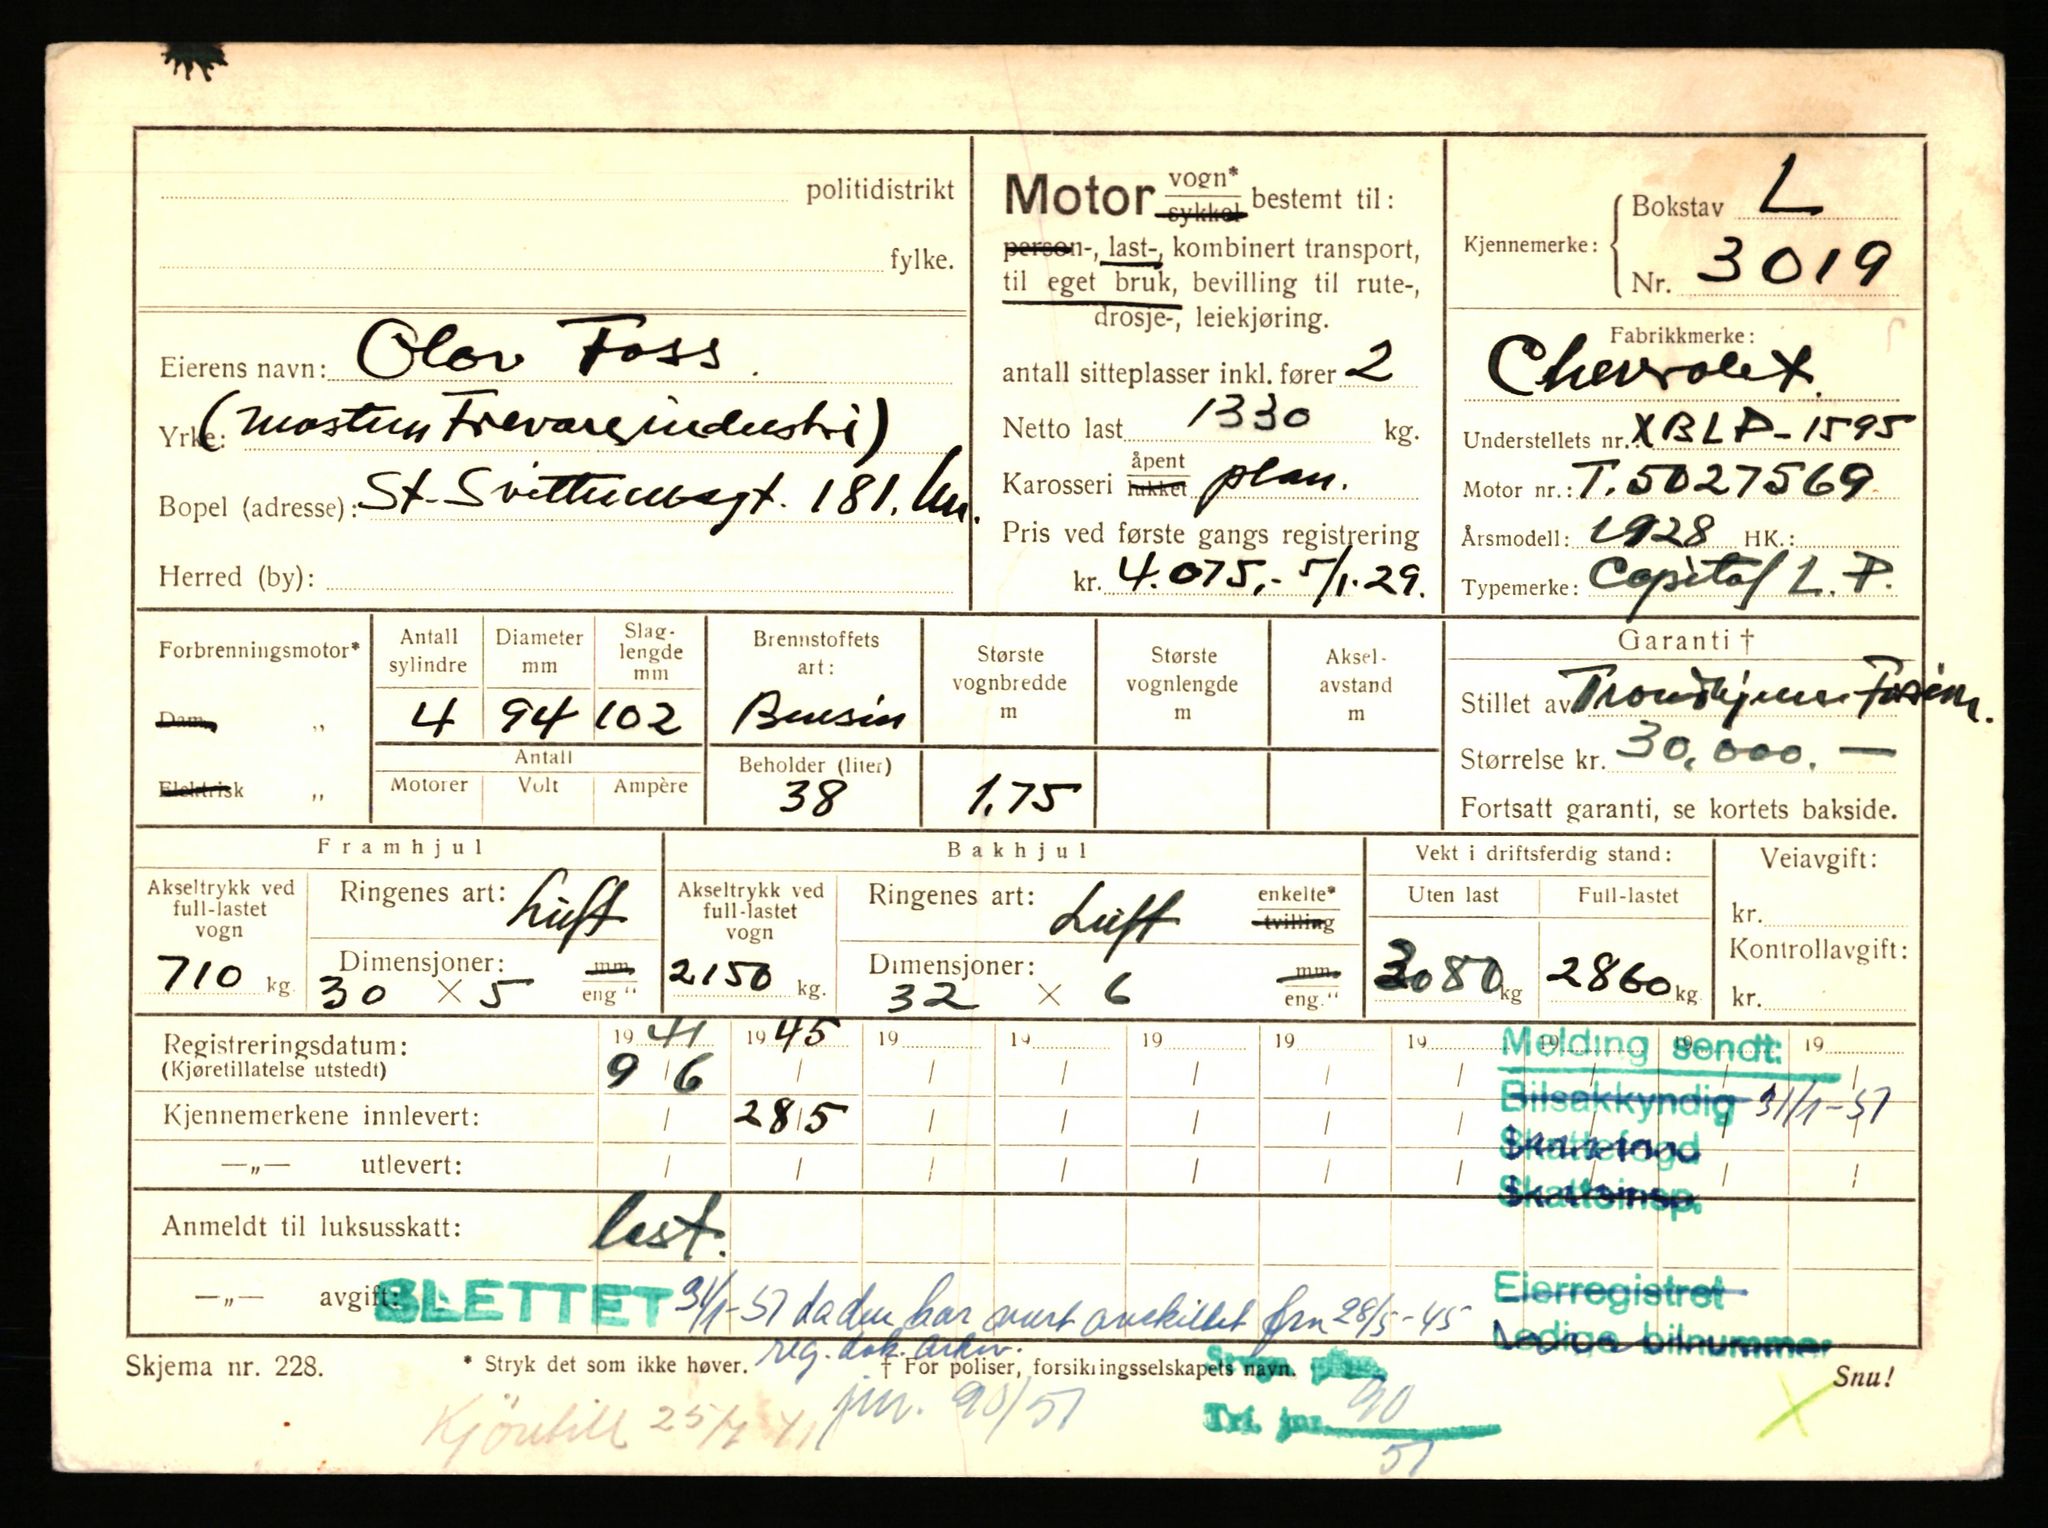 politidistrikt
fylke.
Eierens navn: Olav Foss
Yrke: (Mostun Trevareindustri)
Bopel (adresse): St. Svithunsgt. 181.
Herred (by):
Motor vogn* sykkel bestemt til:
person-, last-, kombinert transport,
til eget bruk, bevilling til rute-,
drosje-, leiekjøring.
antall sitteplasser inkl. fører 2
Netto last 1330 kg.
Karosseri åpent lukket plan.
Pris ved første gangs registrering
kr. 4.075,- 5/1.29.
Kjennemerke: Bokstav L
Nr. 3019
Fabrikkmerke:
Chevrolet
Understellets nr.: XBLP-1595
Motor nr.: T.5027569
Årsmodell: 1928 HK.:
Typemerke: Capitol L.P.
Forbrenningsmotor*
Dam „
Elektrisk „
Antall sylindre
4
Diameter mm
94
Slaglengde mm
102
Antall
Motorer Volt Ampère
Brennstoffets art:
Bensin
Beholder (liter)
38
Største vognbredde m
1,75
Største vognlengde m
Aksel-avstand m
Garanti †
Stillet av Trondhjems Forsikr.
Størrelse kr. 30,000.—
Fortsatt garanti, se kortets bakside.
Framhjul
Akseltrykk ved full-lastet vogn
710 kg.
Ringenes art: Luft
Dimensjoner: mm
30 × 5 eng "
Bakhjul
Akseltrykk ved full-lastet vogn
2150 kg.
Ringenes art: Luft enkelte* tvilling
Dimensjoner: mm.
32 × 6 eng."
Vekt i driftsferdig stand:
Uten last Full-lastet
080 kg 2860 kg.
Veiavgift:
kr.
Kontrollavgift:
kr.
Registreringsdatum: 19 41 19 45 19 19 19 19 19 19 19 19
(Kjøretillatelse utstedt) 9/6
Kjennemerkene innlevert: 28/5
—„— utlevert:
Anmeldt til luksusskatt: last.
—„— avgift:
SLETTET 31/1-51 da den har vært avskiltet fra 28/5-45
reg. dok. arkiv.
Melding sendt:
Bilsakkyndig 31/1-51
Skattefogd
Skatteinsp.
Eierregistret
Ledige bilnummer
Skjema nr. 228. * Stryk det som ikke høver. † For poliser, forsikringsselskapets navn. Snu!
Kjöretill 25/ 41
jnr. 90/51
jnr. 90
51